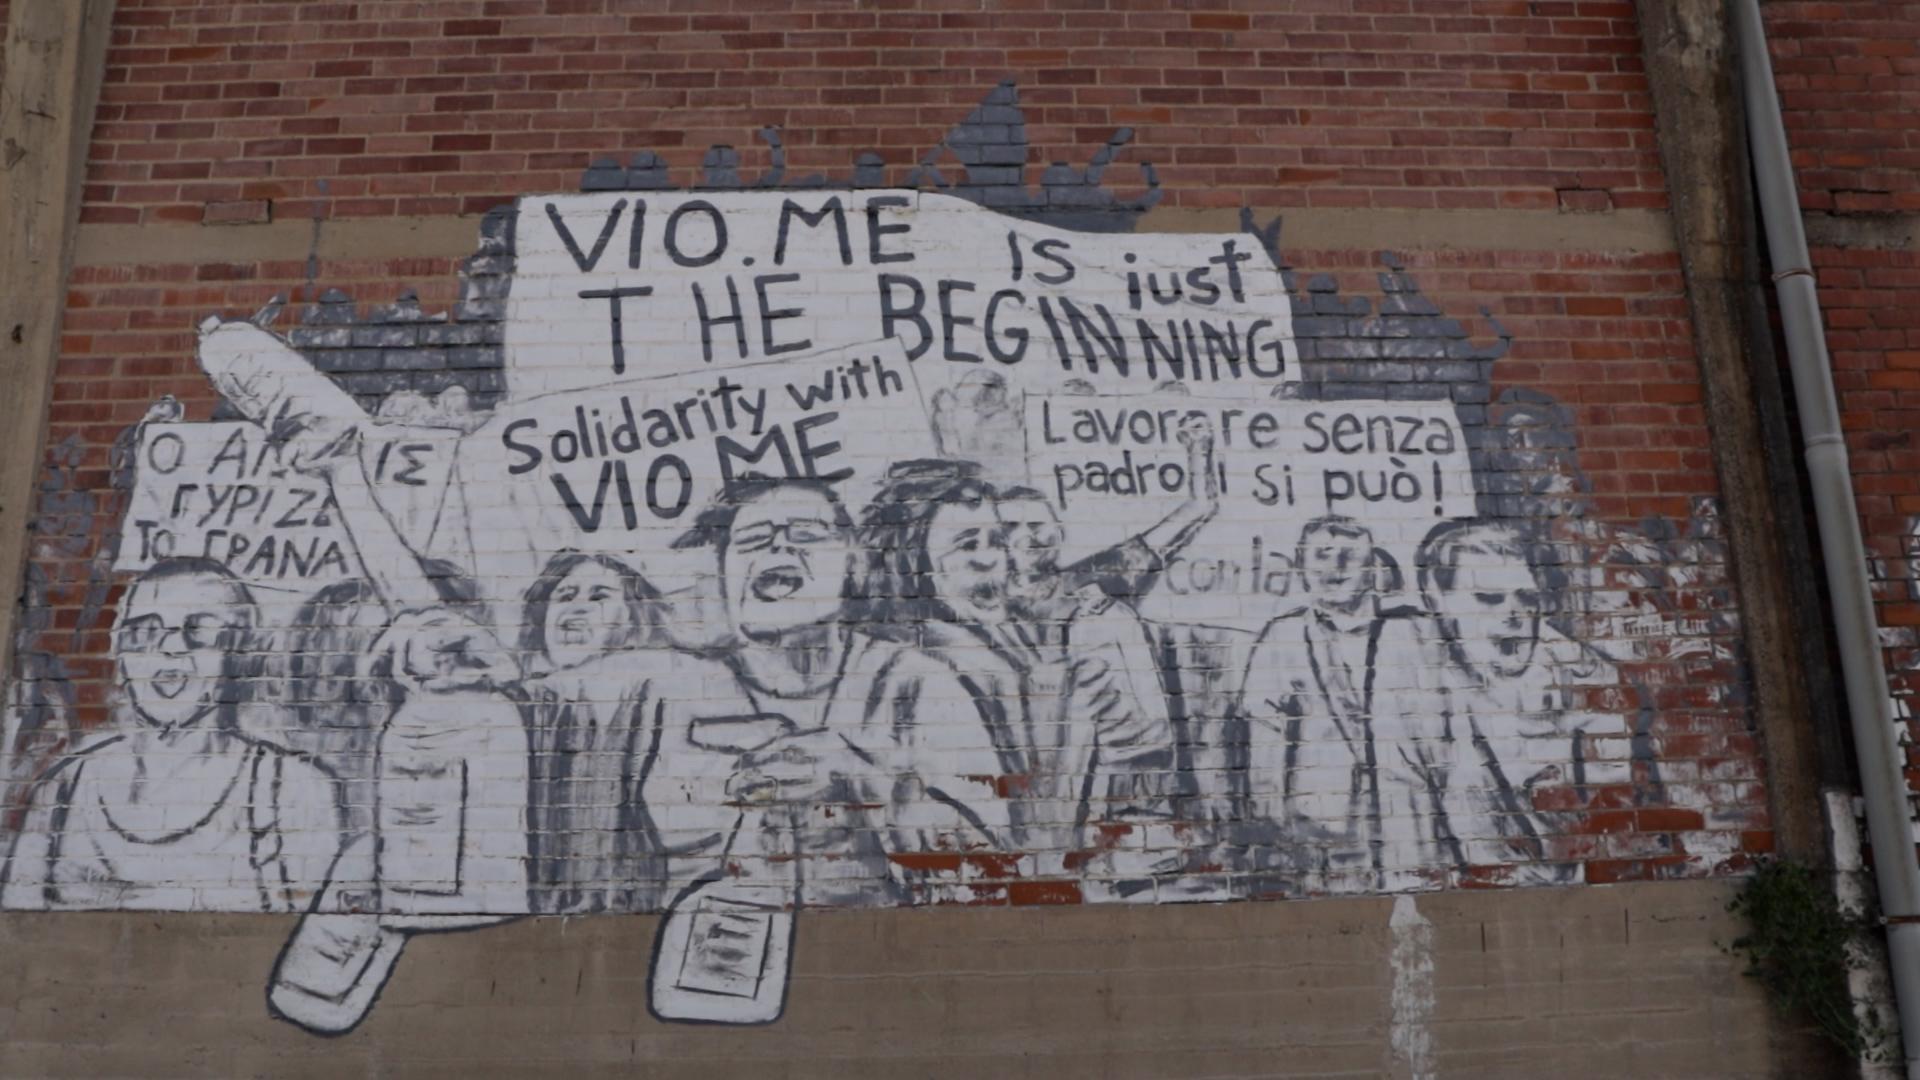 VIO.ME IS just
THE BEGINNING
Solidarity with
VIO ME
Lavorare senza
padroni si può!
con la
Ο
ΓΥΡΙΖΕΙ
ΤΟ ΓΡΑΝΑ